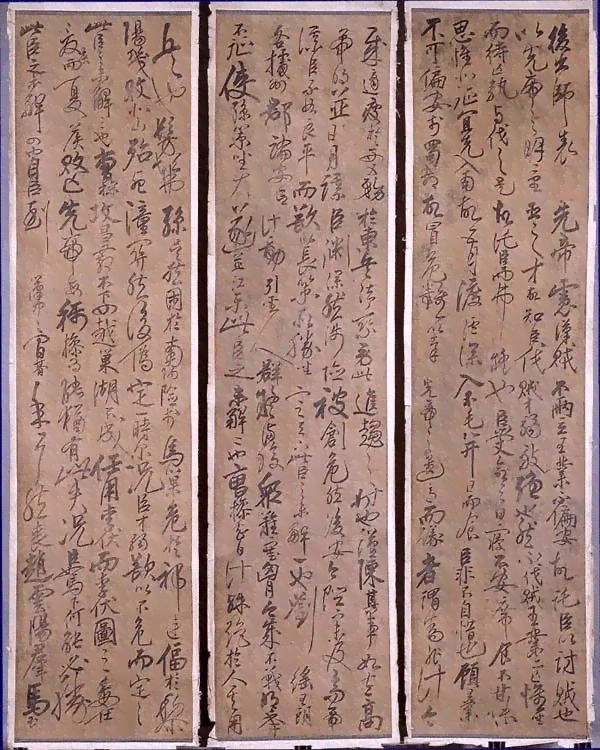 後出師表 先帝慮漢賊不兩立王業不偏安故託臣以討賊也
以先帝之明量臣之才故知臣伐賊才弱敵強也然不伐賊王業亦亡惟坐
而待亡孰與伐之是故託臣而弗疑也臣受命之日寢不安席食不甘味
思惟北征宜先入南故五月渡瀘深入不毛并日而食臣非不自惜也顧王業
不可偏安於蜀都故冒危難以奉先帝之遺意而議者謂為非計今
賊適疲於西又務於東兵法乘勞此進趨之時也謹陳其事如左高
帝明並日月謀臣淵深然涉險被創危然後安今陛下未及高帝
謀臣不如良平而欲以長策取勝坐定天下此臣之未解一也劉繇王朗
各據州郡論安言計動引聖人群疑滿腹眾難塞胸今歲不戰明年
不征使孫策坐大遂並江東此臣之未解二也曹操智計殊絕於人其用
兵也髣髴孫吳然困於南陽險於烏巢危於祁連偪於黎
陽幾敗北山殆死潼關然後偽定一時爾況臣才弱欲以不危而定之
此臣之未解三也曹操五攻昌霸不下四越巢湖不成任用李伏而李伏圖之委任
夏侯而夏侯敗亡先帝每稱操為能猶有此失況臣駑下何能必勝
此臣之未解四也自臣到漢中中間朞年耳然喪趙雲陽群馬玉